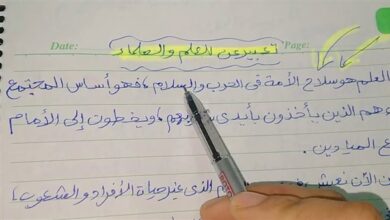 Date: Page:
تعبير عن العلم والعلماء
العلم هو سلاح الأمة فى الحرب والسلام، فهو أساس المجتمع
هم الذين يأخذون بأيدى، ويخطون إلى الأمام
الميادين.
الذى غير حياة الأفراد والشعوب